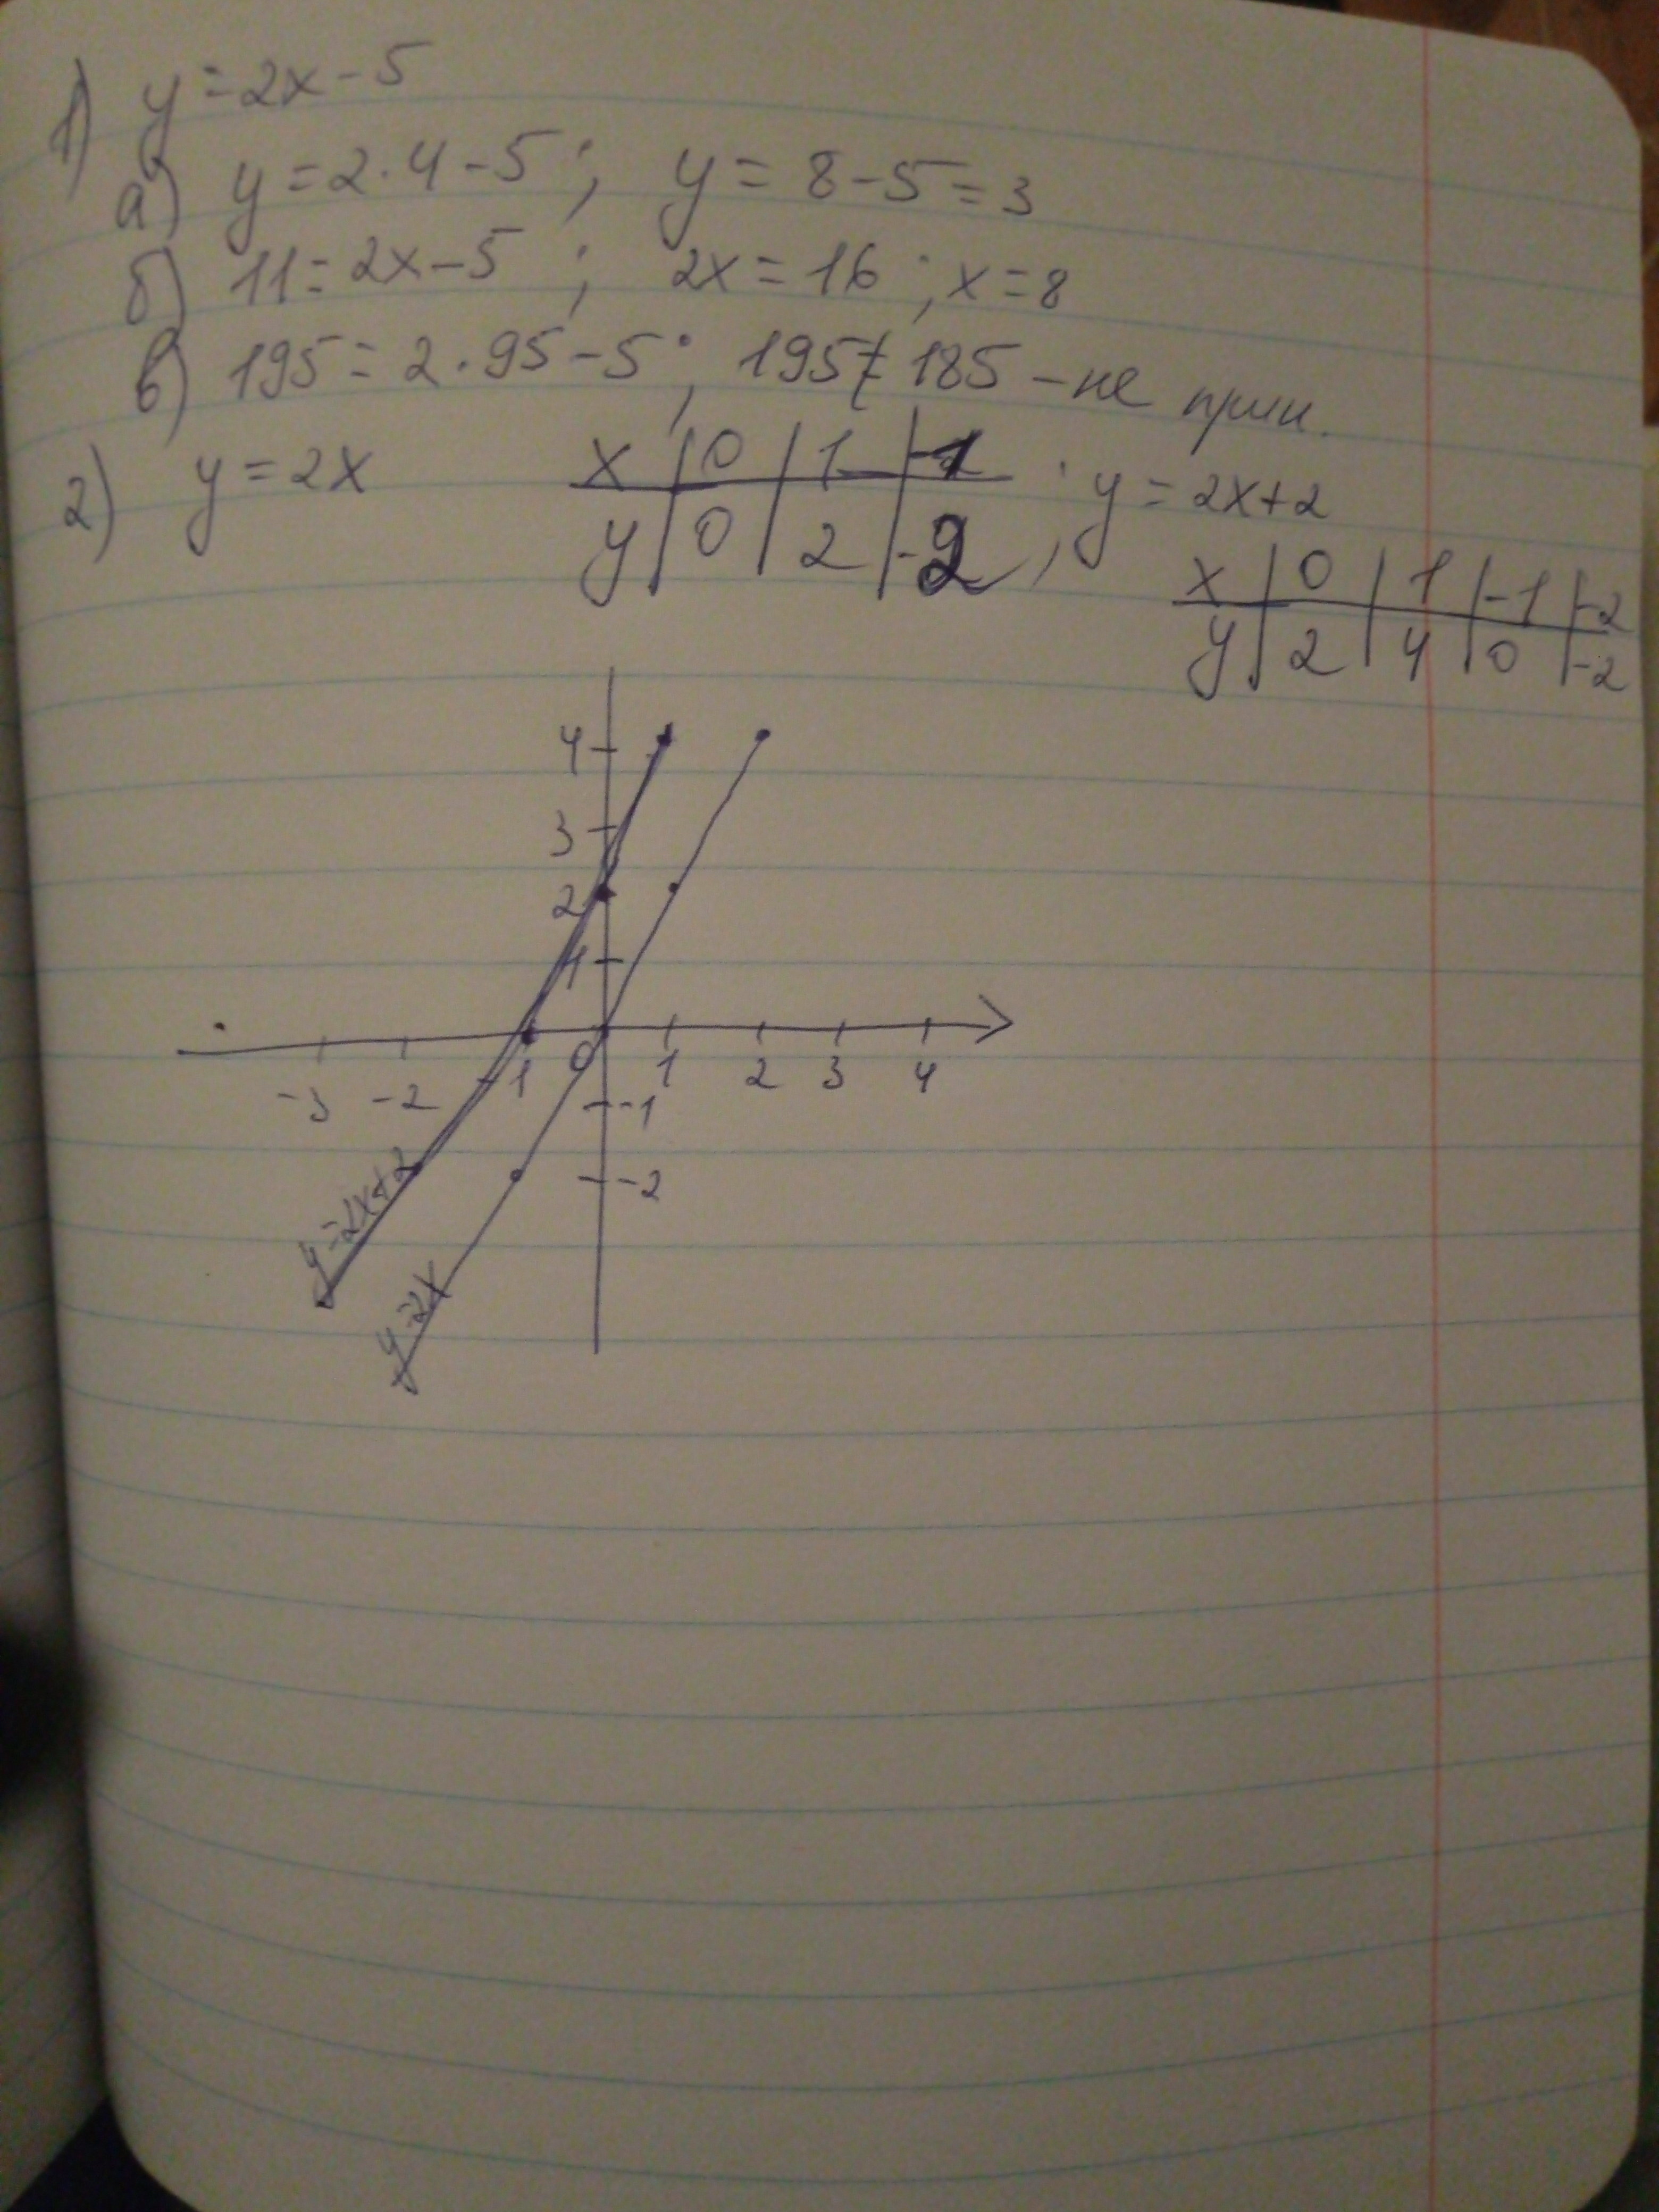 1) y = 2x - 5
а) y = 2·4 - 5 ; y = 8 - 5 = 3
б) 11 = 2x - 5 ; 2x = 16 ; x = 8
в) 195 = 2·95 - 5 ; 195 ≠ 185 - не прин.
2) y = 2x
x | 0 | 1 | -1
y | 0 | 2 | -2
; y = 2x+2
x | 0 | 1 | -1 | -2
y | 2 | 4 | 0 | -2
4
3
2
1
-3 -2 -1 0 1 2 3 4
-1
-2
y=2x+2
y=2x